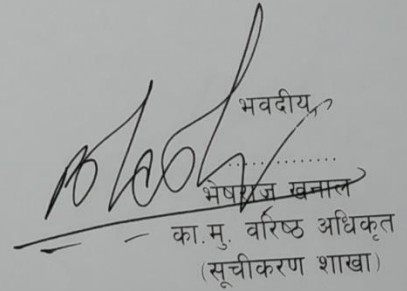 भवदीय,
..............
भेषराज खनाल
का.मु. वरिष्ठ अधिकृत
(सूचीकरण शाखा)